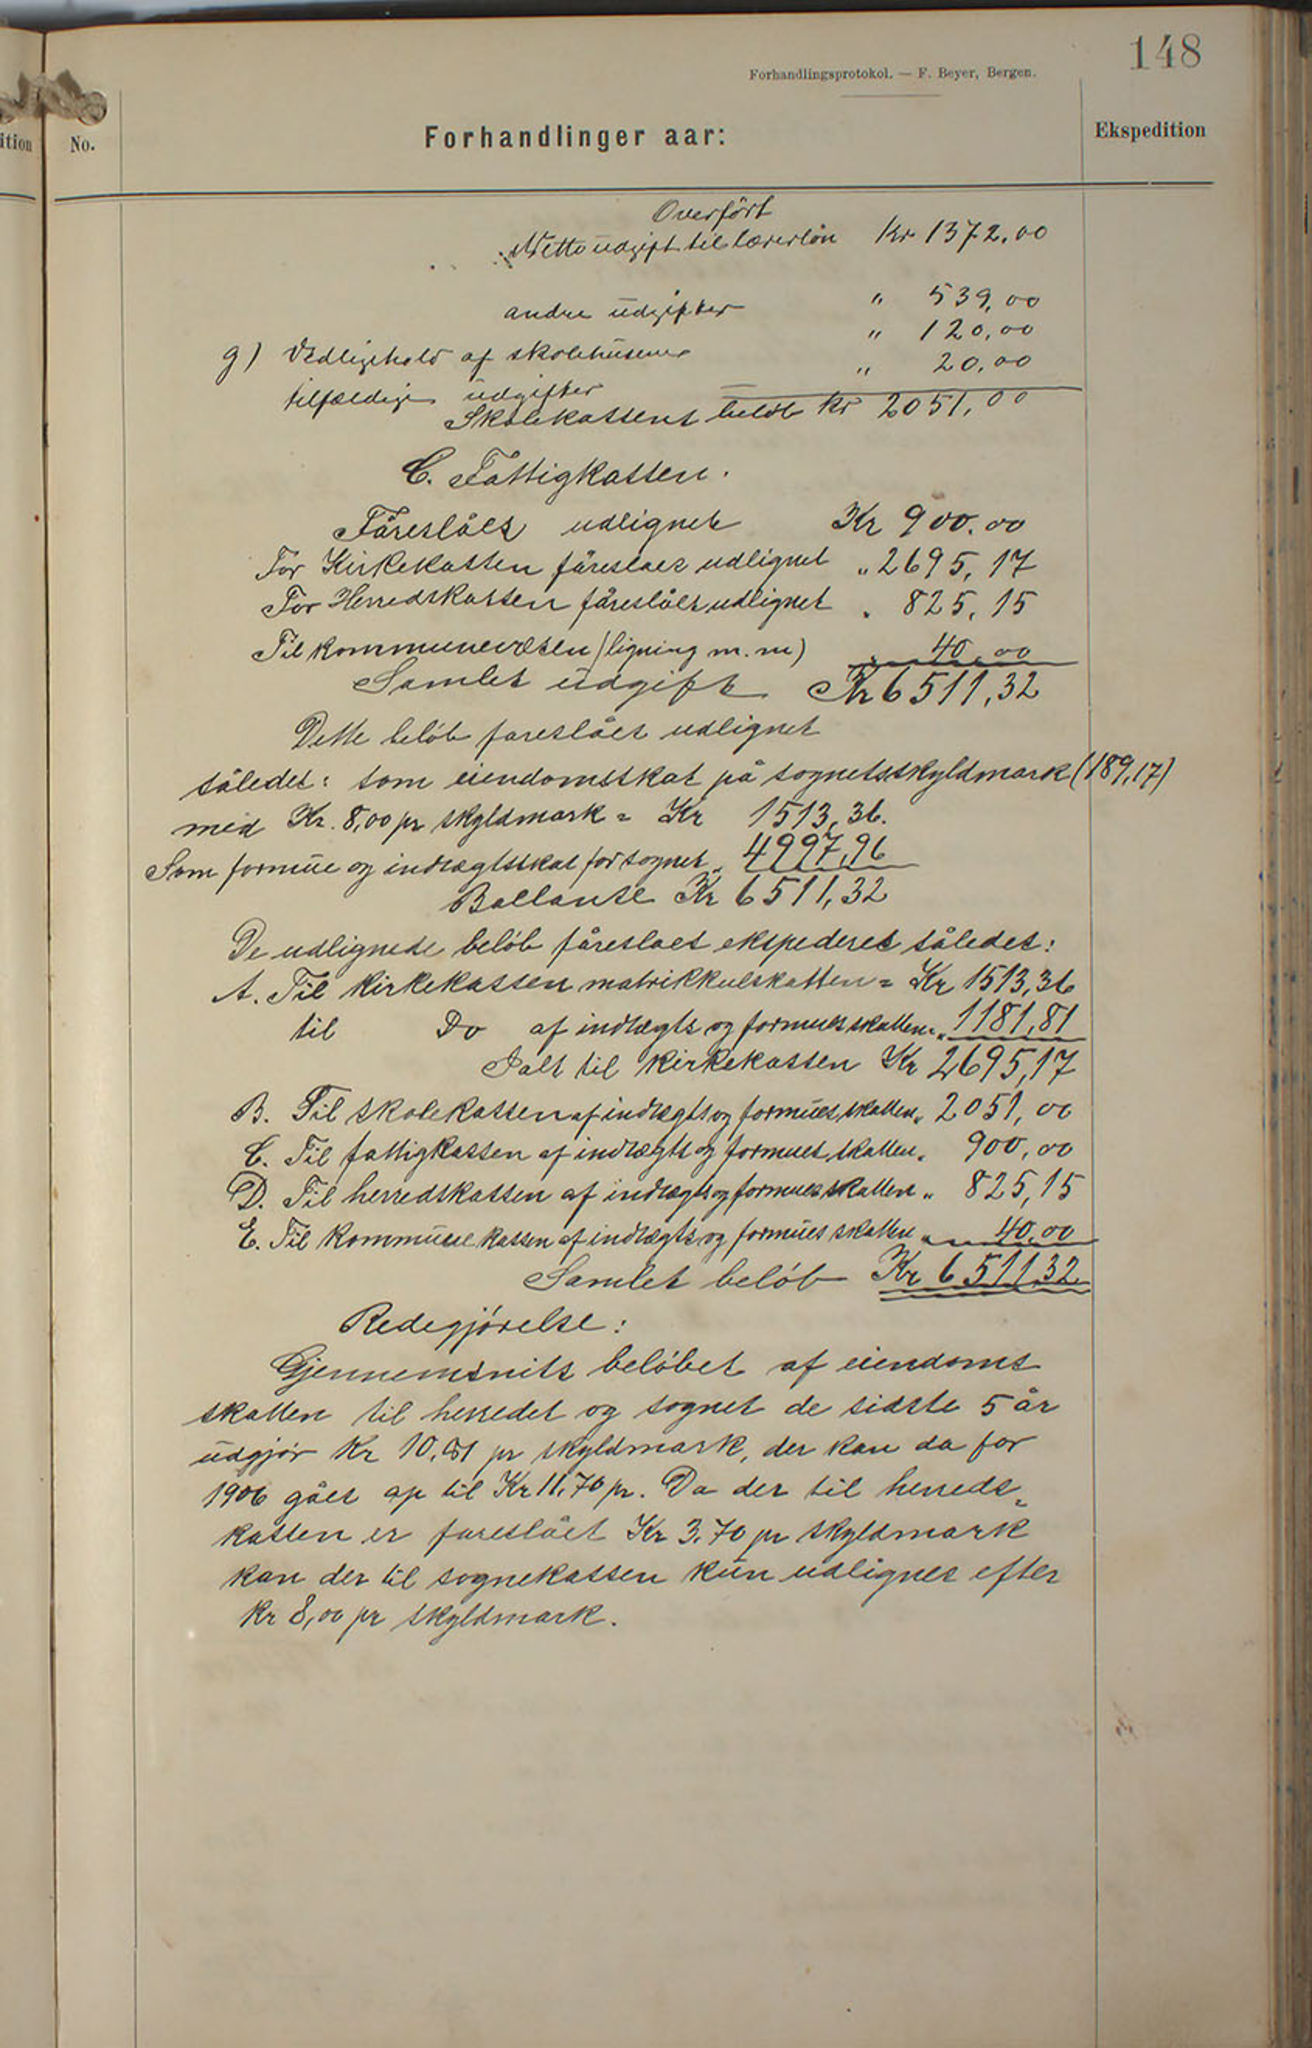 148
Forhandlingsprotokol. — F. Beyer, Bergen.
ition No. Forhandlinger aar: Ekspedition
Overført
Netto udgift til lærerløn Kr 1372,00
andre udgifter " 539,00
g) Vedligehold af skolehusene " 120,00
tilfældige udgifter " 20,00
Skolekassens beløb Kr 2051,00
C. Fattigkassen.
Fåreslåes udlignet Kr 900,00
For Kirkekassen fåreslaes udlignet " 2695,17
For Herredskassen fåreslåes udlignet " 825,15
Til kommunevæsen (ligning m.m) " 40,00
Samlet udgift Kr 6511,32
Dette beløb fareslåes udlignet
således: som eiendomsskat på sognetsskyldmark (189,17)
med Kr. 8,00 pr skyldmark = Kr 1513,36.
Som formue og indtægtsskat for sognet " 4997,96
Ballanse Kr 6511,32
De udlignede beløb fåreslaes ekspederes således:
A. Til kirkekassen matrikkulskatten = Kr 1513,36
til Do af indtægts og formues skatten = " 1181,81
Ialt til kirkekassen Kr 2695,17
B. Til skolekassen af indtægts og formues skatten " 2051,00
C. Til fattigkassen af indtægts og formues skatten " 900,00
D. Til herredskassen af indtægts og formues skatten " 825,15
E. Til kommune kassen af indtægts og formues skatten " 40,00
Samlet beløb Kr 6511,32
Redegjørelse:
Gjennemsnits beløbet af eiendoms
skatten til herredet og sognet de sidste 5 år
udgjør Kr pr skyldmark, der kan da for
1906 gåes op til Kr 11,70 pr. Da der til herreds-
kassen er fareslået Kr 3.70 pr skyldmark
kan der til sognekassen kun udlignes efter
Kr 8,00 pr skyldmark.